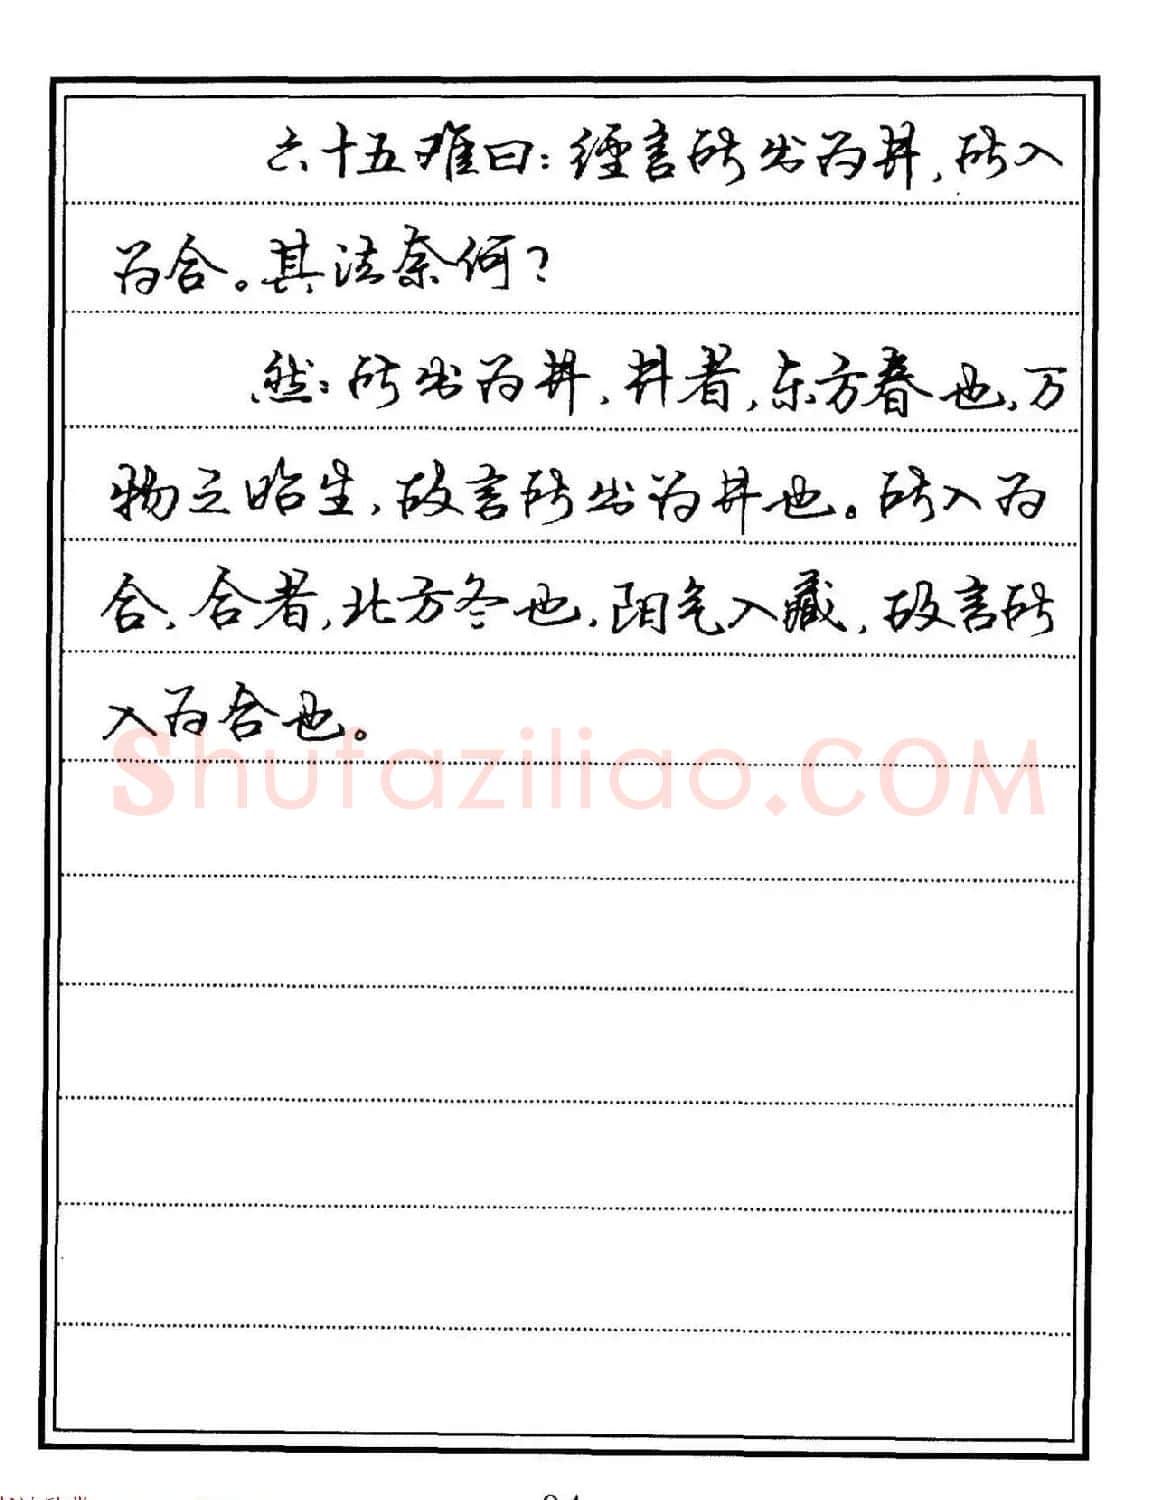 六十五难曰：經言所出为井，所入
为合。其法奈何？
然：所出为井，井者，东方春也，万
物之始生，故言所出为井也。所入为
合，合者，北方冬也，阳气入藏，故言所
入为合也。
Shufaziliao.COM